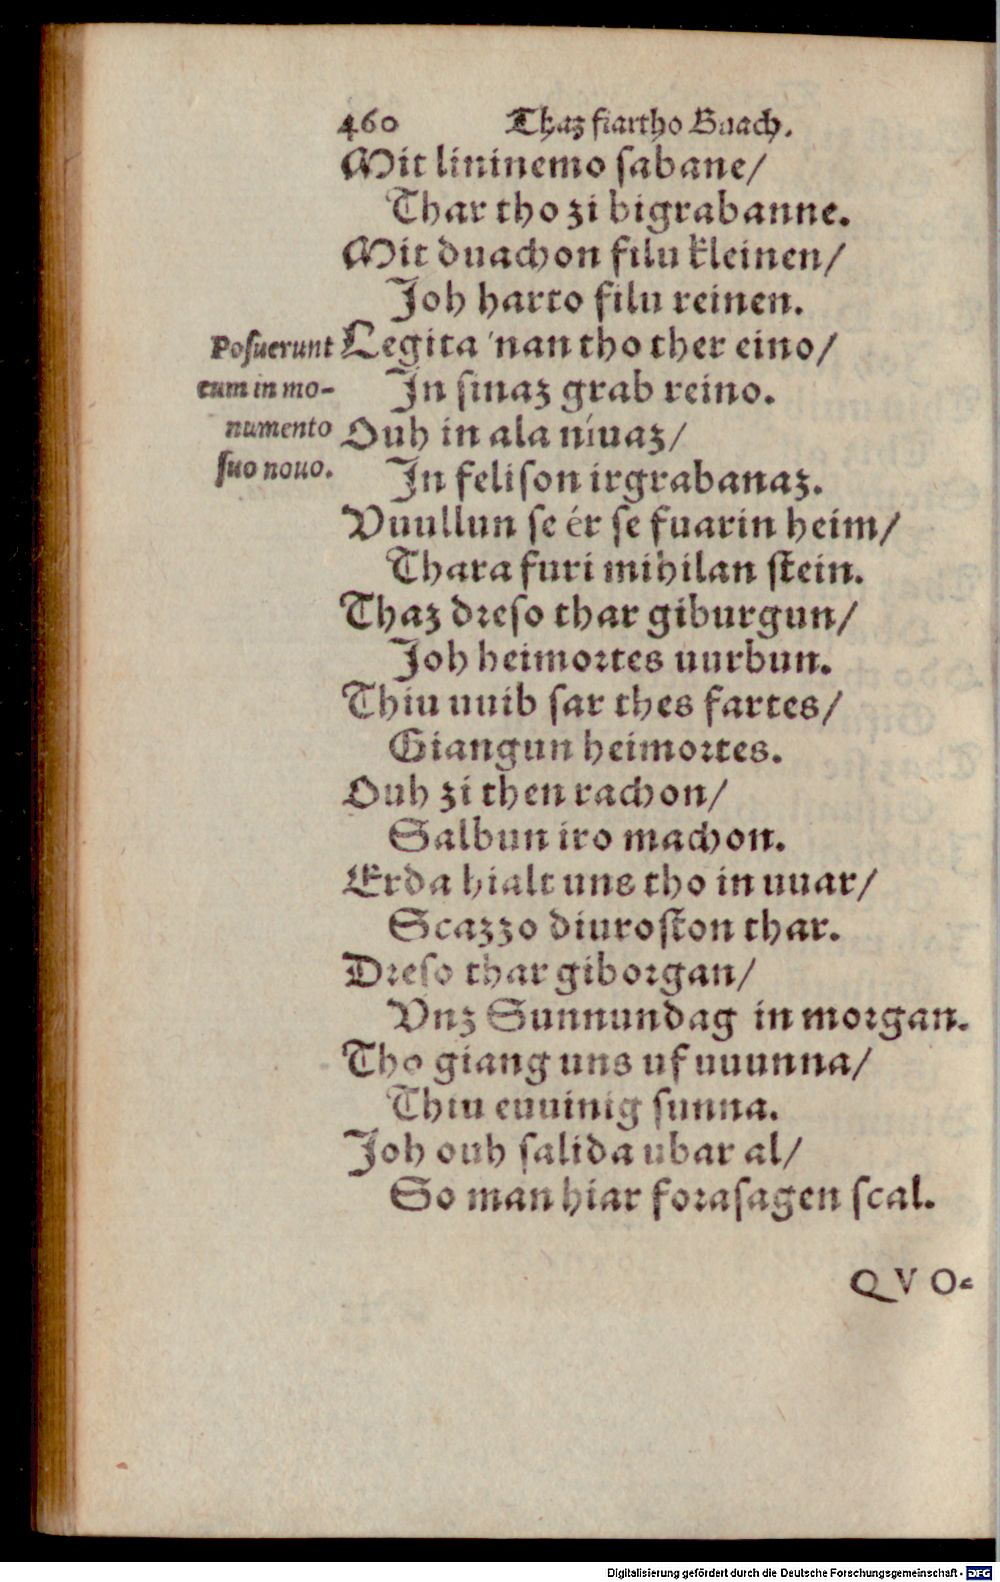 460 Thaz fiartho Buach.
Mit lininemo sabane/
Thar tho zi bigrabanne.
Mit duachon filu kleinen/
Joh harto filu reinen.
Posuerunt
eum in mo-
numento
suo nouo.
Legita 'nan tho ther eino/
In sinaz grab reino.
Ouh in ala níuaz/
In felison irgrabanaz.
Vuullun se ér se fuarin heim/
Thara furi mihilan stein.
Thaz dreso thar giburgun/
Joh heimortes uurbun.
Thiu uuib sar thes fartes/
Giangun heimortes.
Ouh zi then rachon/
Salbun iro machon.
Erda hialt uns tho in uuar/
Scazzo diuroston thar.
Dreso thar giborgan/
Vnz Sunnundag in morgan.
Tho giang uns uf uuunna/
Thiu euuinig sunna.
Joh ouh salida ubar al/
So man hiar forasagen scal.
QVO-
Digitalisierung gefördert durch die Deutsche Forschungsgemeinschaft - DFG